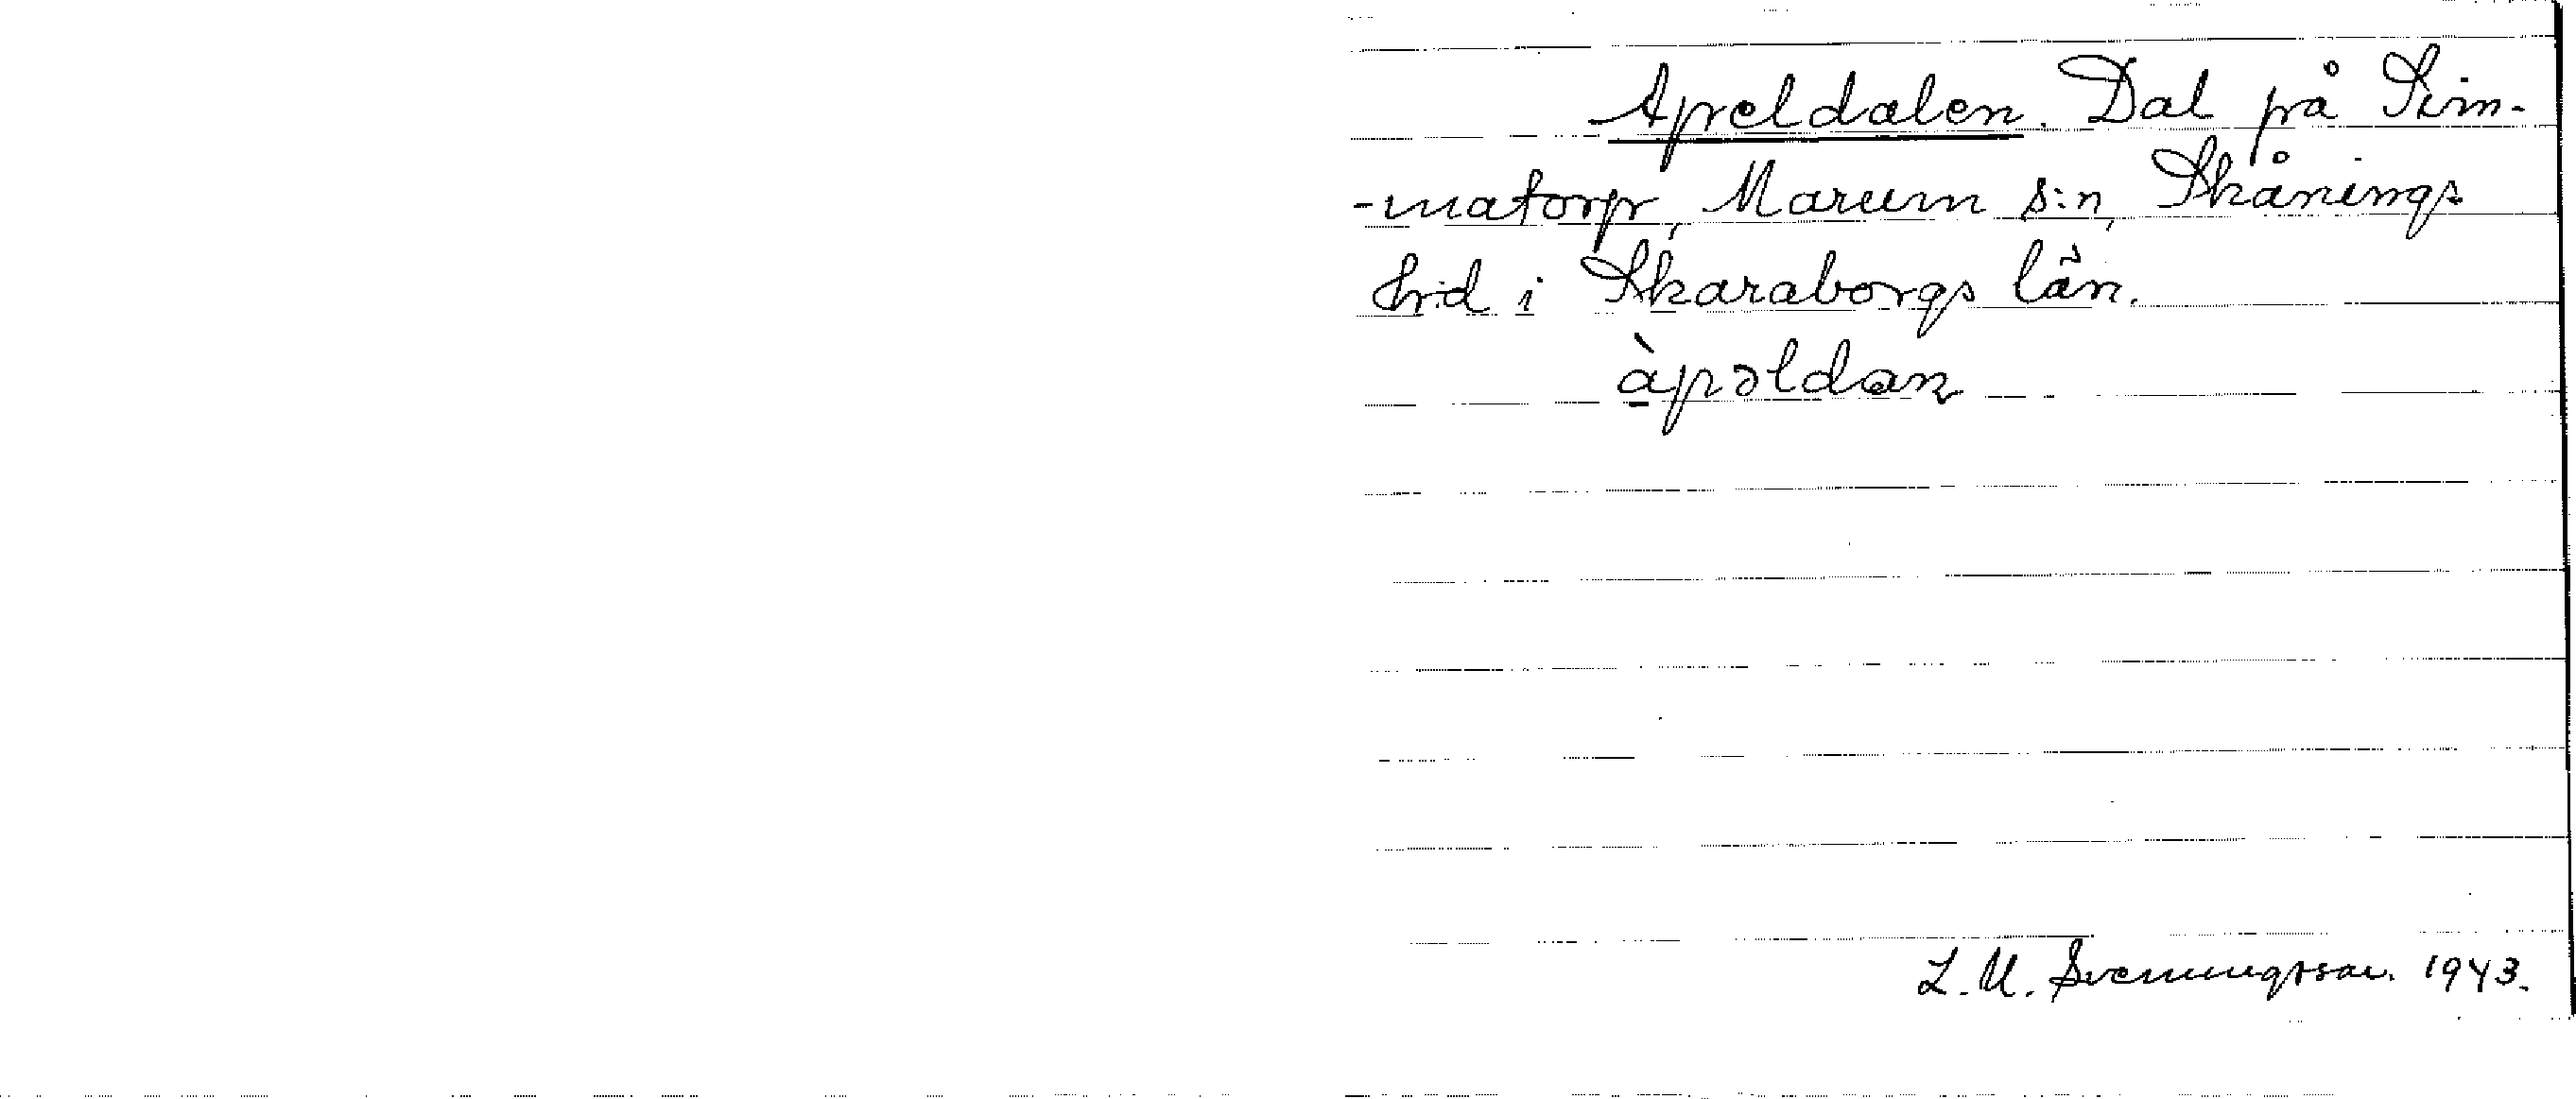 Apeldalen. Dal på Sim-
-matorp, Marum s:n, Skånings
hrd i Skaraborgs län.
àpəldan
L. M. Svenungsson. 1943.